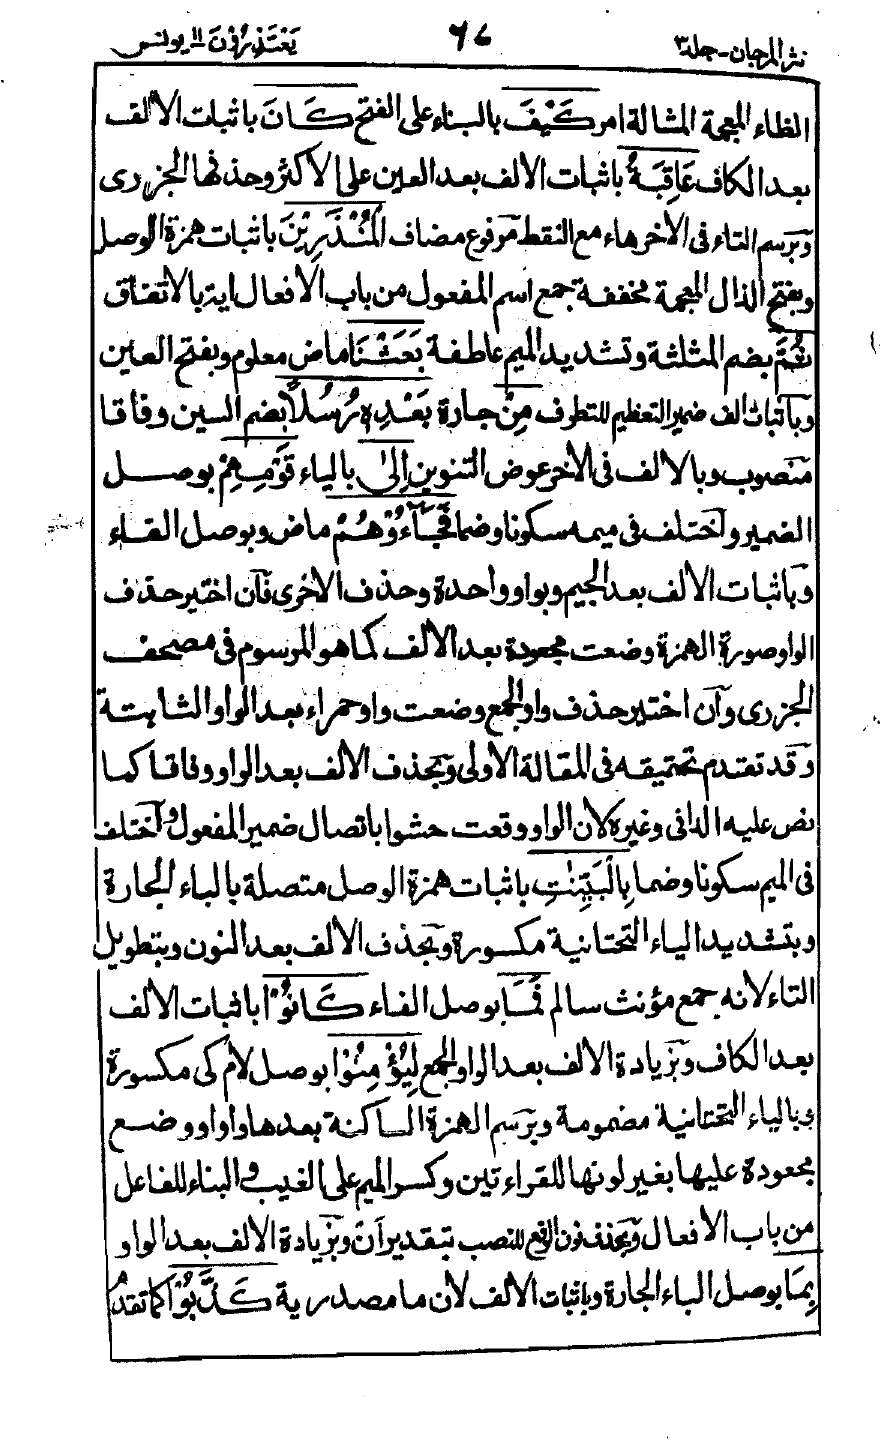 نثر المرجان-جلد٣
٦٧
يَعْتَذِرُوْنَ ١١ يونس
الظاء المعجمة المشالة امر كَيْفَ بالبناء على الفتح كَانَ باثبات الالف
بعد الكاف عَاقِبَةُ باثبات الالف بعد العين على الاكثر وحذفها الجزرى
وبرسم التاء فى الاخر هاء مع النقط مرفوع مضاف الْمُنْذَرِيْنَ باثبات همزة الوصل
وبفتح الذال المعجمة مخففة جمع اسم المفعول من باب الافعال اية بالاتفاق
ثُمَّ بضم المثلثة وتشديد الميم عاطفة بَعَثْنَا ماض معلوم وبفتح العين
وبآثبات الف ضمير التعظيم للتطرف مِنْ جارة بَعْدِهٖ رُسُلًا بضم السين وفاقا
منصوب وبالالف فى الاخر عوض التنوين اِلٰى بالياء قَوْمِهِمْ بوصل
الضمير واختلف فى ميمه سكونا وضما فَجَآءُوْهُمْ ماض وبوصل الفاء
وبآثبات الالف بعد الجيم وبواو واحدة وحذف الاخرى فآن اختير حذف
الواو صورة الهمزة وضعت مجعودة بعد الالف كما هو المرسوم فى مصحف
الجزرى وآن اختير حذف واو الجمع وضعت واو حمراء بعد الواو الثابتة
وقد تقدم تحقيقه فى المقالة الاولى وبحذف الالف بعد الواو وفاقا كما
نص عليه الدانى وغيره لان الواو وقعت حشوا باتصال ضمير المفعول واختلف
فى الميم سكونا وضما بِالْبَيِّنٰتِ باثبات همزة الوصل متصلة بالباء الجارة
وبتشديد الياء التحتانية مكسورة وبحذف الالف بعد النون وبتطويل
التاء لانه جمع مؤنث سالم فَمَا بوصل الفاء كَانُوْا باثبات الالف
بعد الكاف وبزيادة الالف بعد الواو الجمع لِيُؤْمِنُوْا بوصل لام كى مكسورة
وبالياء التحتانية مضمومة وبرسم الهمزة الساكنة بعدها واوا ووضع
مجعودة عليها بغير لونها للقراءتين وكسر الميم على الغيب والبناء للفاعل
من باب الافعال وبحذف نون الرفع للنصب بتقدير اَنْ وبزيادة الالف بعد الواو
بِمَا بوصل الباء الجارة وباثبات الالف لان ما مصدرية كَذَّبُوْا كما تقدم